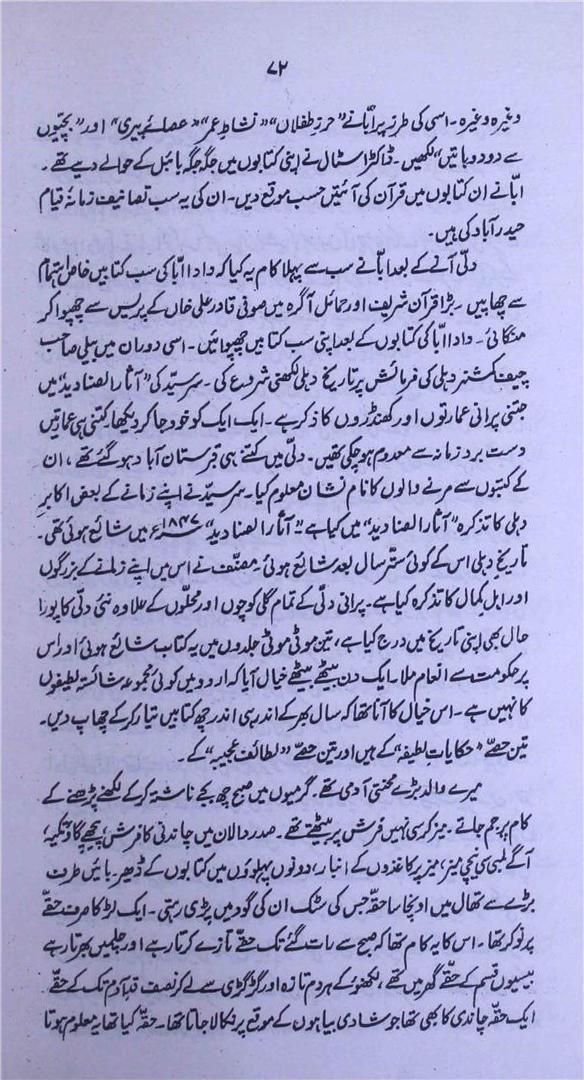 ۷۲
وغیرہ وغیرہ۔ اسی کی طرز پر ابّا نے "حرزِ طفلاں" "نشاطِ عمر" "عصائے پیری" اور "بچیّوں
سے دو دو باتیں" لکھیں۔ ڈاکٹر اسٹال نے اپنی کتابوں میں جگہ جگہ بائبل کے حوالے دیے تھے۔
ابّا نے ان کتابوں میں قرآن کی آئتیں حسب موقع دیں۔ ان کی یہ سب تصانیف زمانۂ قیام
حیدرآباد کی ہیں۔
دلّی آنے کے بعد ابّا نے سب سے پہلا کام یہ کیا کہ دادا ابّا کی سب کتابیں خاص اہتمام
سے چھاپیں۔ بڑا قرآن شریف اور حمائل آگرہ میں صوفی قادر علی خاں کے پریس سے چھپوا کر
منگائی۔ دادا ابّا کی کتابوں کے بعد اپنی سب کتابیں چھپوائیں۔ اسی دوران میں بیلی صاحب
چیف کمشنر دہلی کی فرمائش پر تاریخ دہلی لکھنی شروع کی۔ سر سیّد کی "آثار الصنادید" میں
جتنی پرانی عمارتوں اور کھنڈروں کا ذکر ہے۔ ایک ایک کو خود جا کر دیکھا۔ کتنی ہی عمارتیں
دست بردِ زمانہ سے معدوم ہو چکی تھیں۔ دلّی میں کتنے ہی قبرستان آباد ہو گئے تھے، ان
کے کتبوں سے مرنے والوں کا نام نشان معلوم کیا۔ سر سیّد نے اپنے زمانے کے بعض اکابرِ
دہلی کا تذکرہ "آثار الصنادید" میں کیا ہے۔ "آثار الصنادید" ۱۸۴۷ء میں شائع ہوئی تھی۔
تاریخِ دہلی اس کے کوئی ستّر سال بعد شائع ہوئی۔ مصنّف نے اس میں اپنے زمانے کے بزرگوں
اور اہل کمال کا تذکرہ کیا ہے۔ پرانی دلّی کے تمام گلی کوچوں اور محلّوں کے علاوہ نئی دلّی کا پورا
حال بھی اپنی تاریخ میں درج کیا ہے، تین موٹی موٹی جلدوں میں یہ کتاب شائع ہوئی اور اس
پر حکومت سے انعام ملا۔ ایک دن بیٹھے بیٹھے خیال آیا کہ اردو میں کوئی مجموعہ شائستہ لطیفوں
کا نہیں ہے۔ اس خیال کا آنا تھا کہ سال بھر کے اندر ہی اندر چھ کتابیں تیار کر کے چھاپ دیں۔
تین حصّے "حکایات لطیفہ" کے ہیں اور تین حصّے "لطائف عجیبہ" کے۔
میرے والد بڑے محنتی آدمی تھے۔ گرمیوں میں صبح چھ بجے ناشتہ کر کے لکھنے پڑھنے کے
کام پر جم جاتے۔ میز کرسی نہیں فرش پر بیٹھتے تھے۔ صدر دالان میں چاندنی کا فرش، پیچھے گاؤ تکیہ،
آگے لمبی سی نیچی میز، میز پر کاغذوں کے انبار، دونوں پہلوؤں میں کتابوں کے ڈھیر، بائیں طرف
بڑے سے تھال میں اونچا سا حقّہ جس کی سٹک ان کی گود میں پڑی رہتی۔ ایک لڑکا صرف حقّے
پر نوکر تھا۔ اس کا یہ کام تھا کہ صبح سے رات گئے تک حقّے تازے کرتا رہے اور چلمیں بھرتا رہے
بیسیوں قسم کے حقّے گھر میں تھے، لکھنؤ کے ہر دم تازہ اور گڑ گڑی سے لے کر نصف قدِ آدم تک کے حقّے
ایک حقّہ چاندی کا بھی تھا جو شادی بیاہوں کے موقع پر نکالا جاتا تھا۔ حقّہ کیا تھا یہ معلوم ہوتا